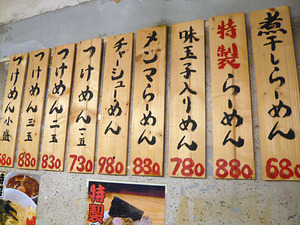 煮干しらーめん
680
特製らーめん
880
味玉子入りめん
780
メンマらーめん
880
チャーシューめん
980
つけめん 一玉
730
つけめん 二玉
830
つけめん 三玉
880
つけめん 小盛
680
特製